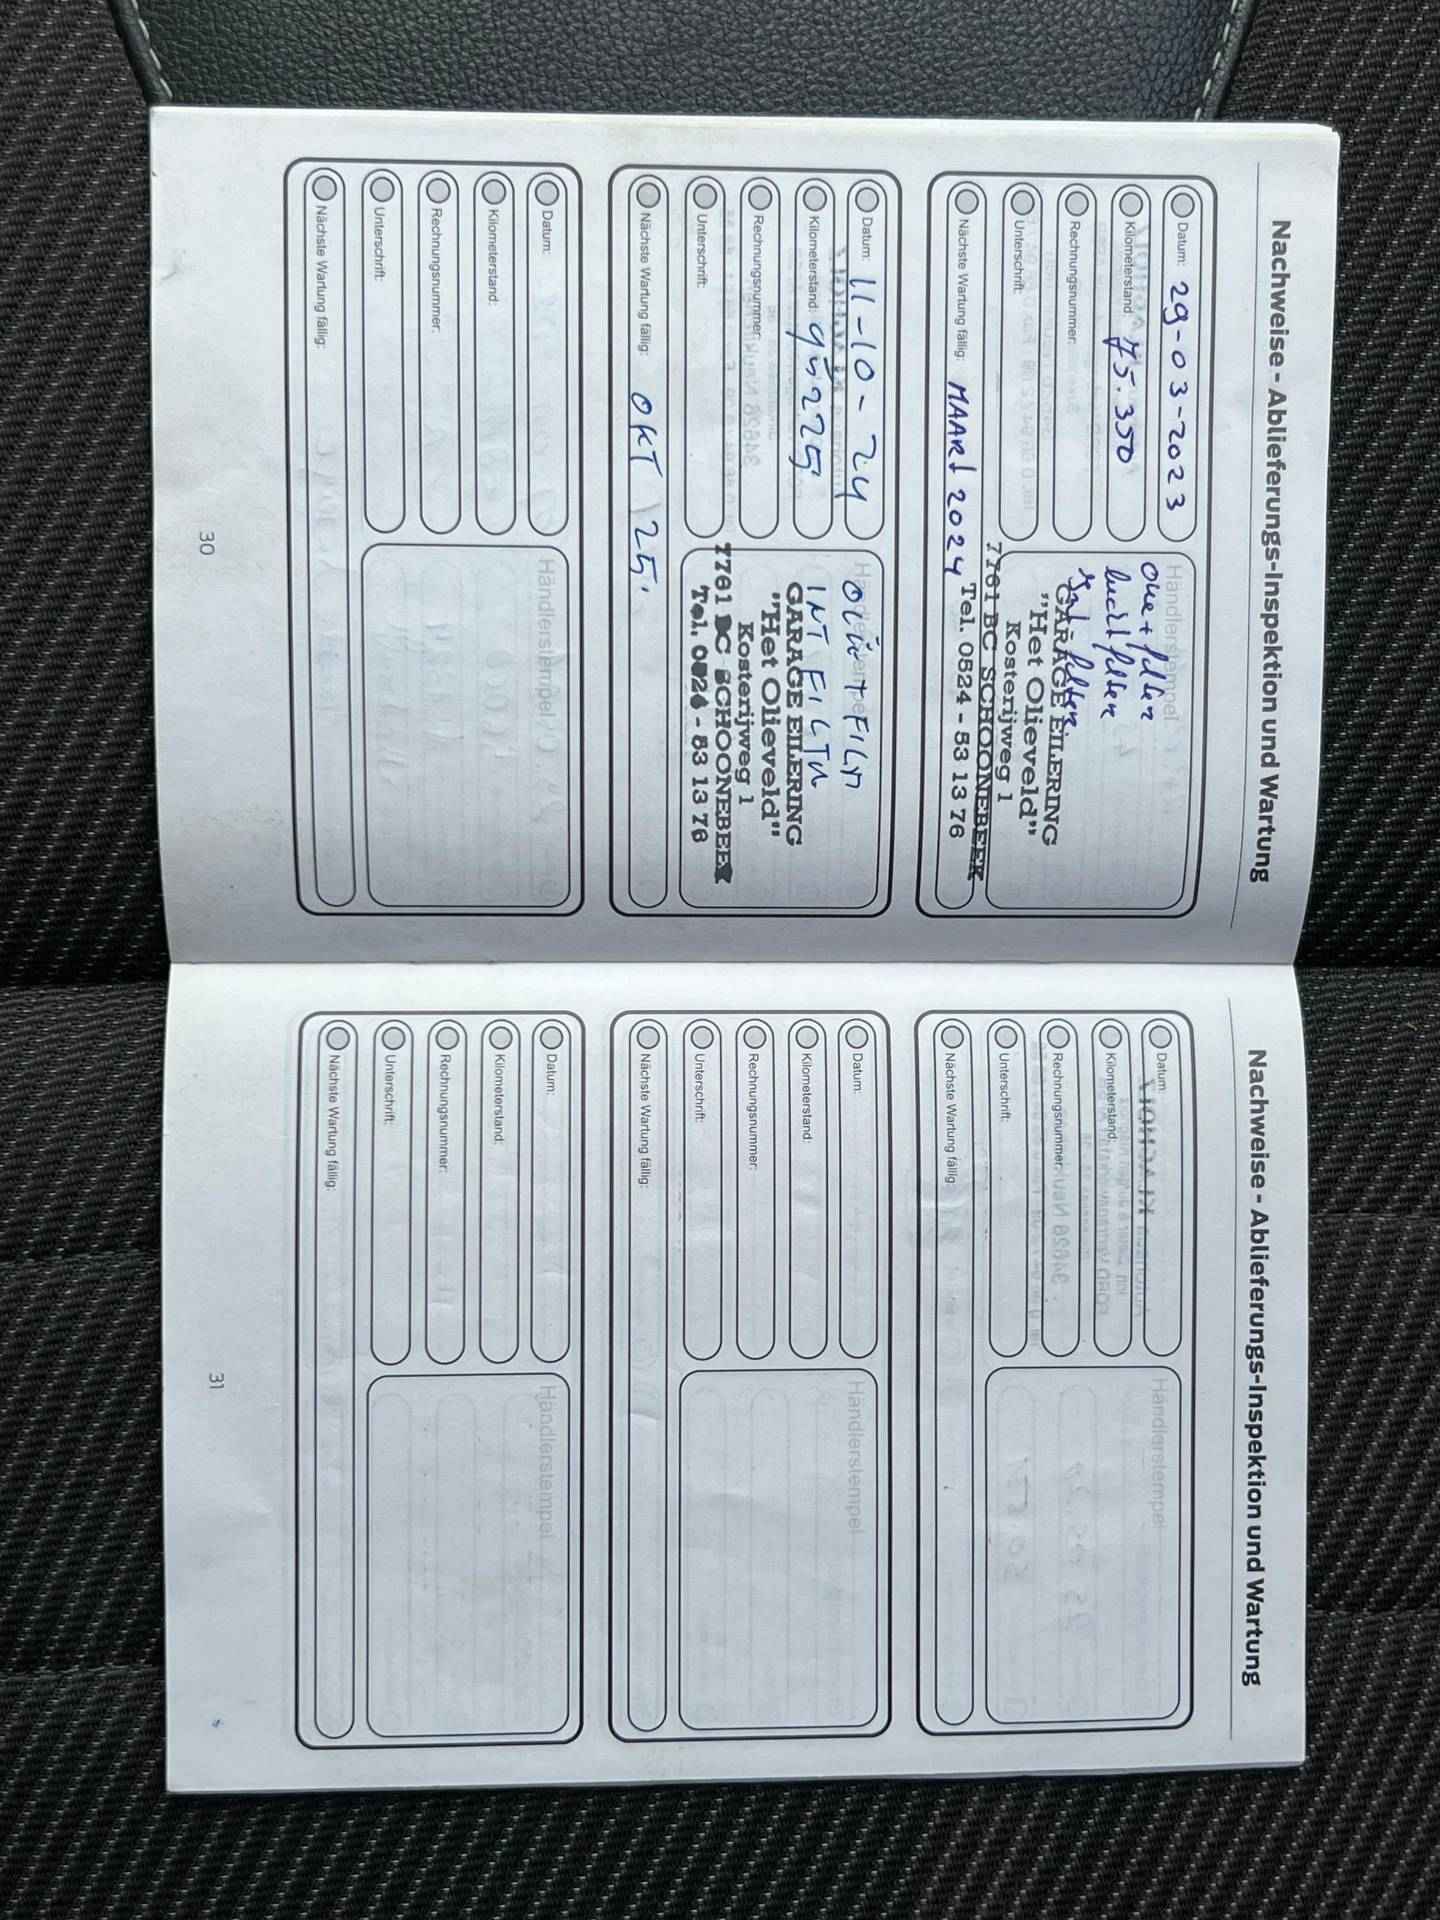 Nachweise - Ablieferungs-Inspektion und Wartung
Datum: 29-03-2023
Kilometerstand: 75.350
Rechnungsnummer:
Unterschrift:
Nächste Wartung fällig: MAART 2024
Händlerstempel
GARAGE EILERING
"Het Olieveld"
Kosterijweg 1
7761 BC SCHOONEBEEK
Tel. 0524 - 53 13 76
Datum: 11-10-24
Kilometerstand: 95225
Rechnungsnummer:
Unterschrift:
Nächste Wartung fällig: OKT '25.
Händlerstempel
INT FILTR
GARAGE EILERING
"Het Olieveld"
Kosterijweg 1
7761 BC SCHOONEBEEK
Tel. 0524 - 53 13 76
Datum:
Kilometerstand:
Rechnungsnummer:
Unterschrift:
Nächste Wartung fällig:
Händlerstempel
30
Nachweise - Ablieferungs-Inspektion und Wartung
Datum:
Kilometerstand:
Rechnungsnummer:
Unterschrift:
Nächste Wartung fällig:
Händlerstempel
Datum:
Kilometerstand:
Rechnungsnummer:
Unterschrift:
Nächste Wartung fällig:
Händlerstempel
Datum:
Kilometerstand:
Rechnungsnummer:
Unterschrift:
Nächste Wartung fällig:
Händlerstempel
31